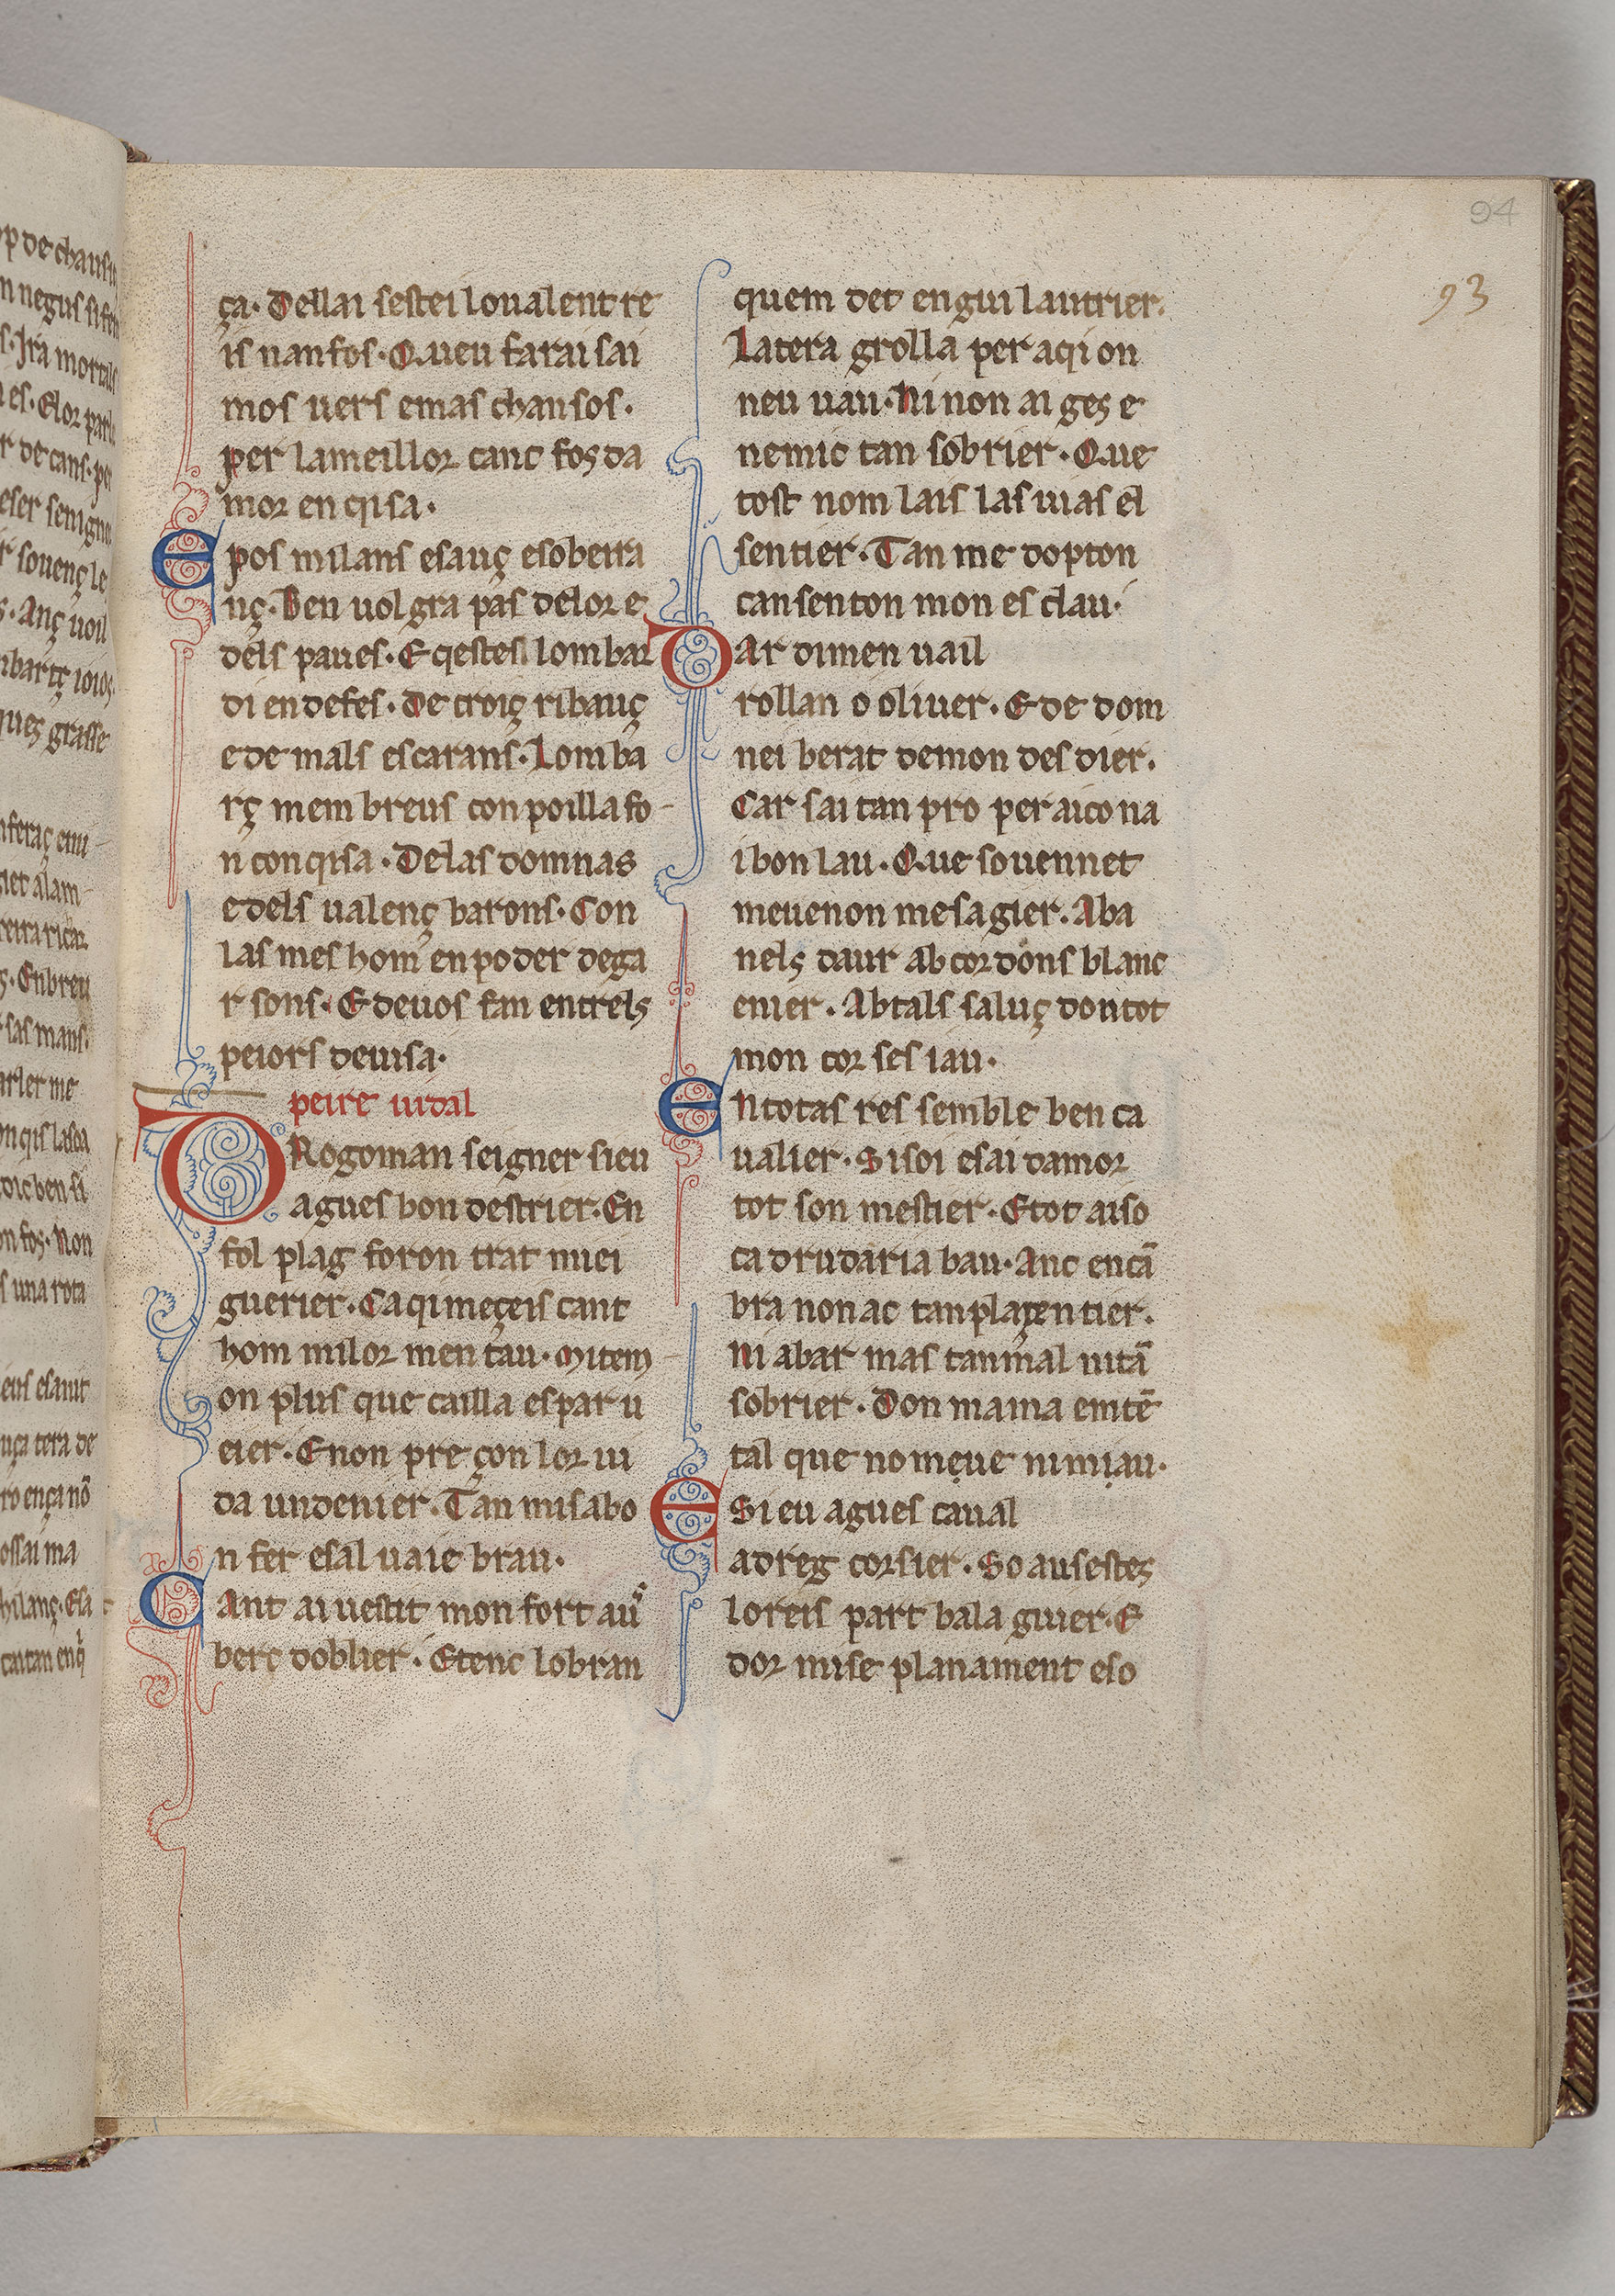 94
93
ça. Dellai sestei loualent re
is nanfos. Queu farai sai
mos uers emas chansos.
per lameillor canc fos da
mor en qisa.
E pos milans esauç esobeira
nç. Ben uolgra pas delor e
dels paues. E qestes lombar
di en defes. De croiç ribauç
e de mals escarans. Lomba
rç mem breus con poilla fo
n conqisa. Delas domnas
edels ualenç barons. Con
las mes hom en poder dega
r sons. E deuos fan entrels
peiors deuisa.
peire uidal
DRogoman seigner sieu
agues bon destrier. En
fol plag foron trat miei
guerier. Caqi meçeis cant
hom milor men tau. Mitem
on plus que cailla espar u
eier. Enon pre çon lor ui
da undenier. Tan misabo
n fer esal uaie brau.
CAnt ai uestit mon fort au
berc doblier. Etenc lobran
quem det engui lautrier.
Latera grolla per aqi on
neu uau. Ni non ai ges e
nemic tan sobrier. Que
tost nom lais las uias el
sentier. Tan me dopton
cansenton mon es clau.
DAr dimen uail
rollan o oliuer. E de dom
nei berat demon des dier.
Car sai tan pro per aico na
i bon lau. Que souennet
meuenon mesagier. Aba
nels daur ab cordons blanc
enier. Abtals saluç dontot
mon cor ses iau.
ENtotas res semble ben ca
ualier. Sisoi esai damor
tot son mestier. Etot aiso
ca drudaria bau. Anc encā
bra non ac tanplaçen tier.
Ni abar mas tanmal uitā
sobrier. Don mama emtē
tal que nomçue nimiau.
E Si eu agues caual
adreg corsier. So ausestes
loreis part bala guier. E
dor mise planament eso